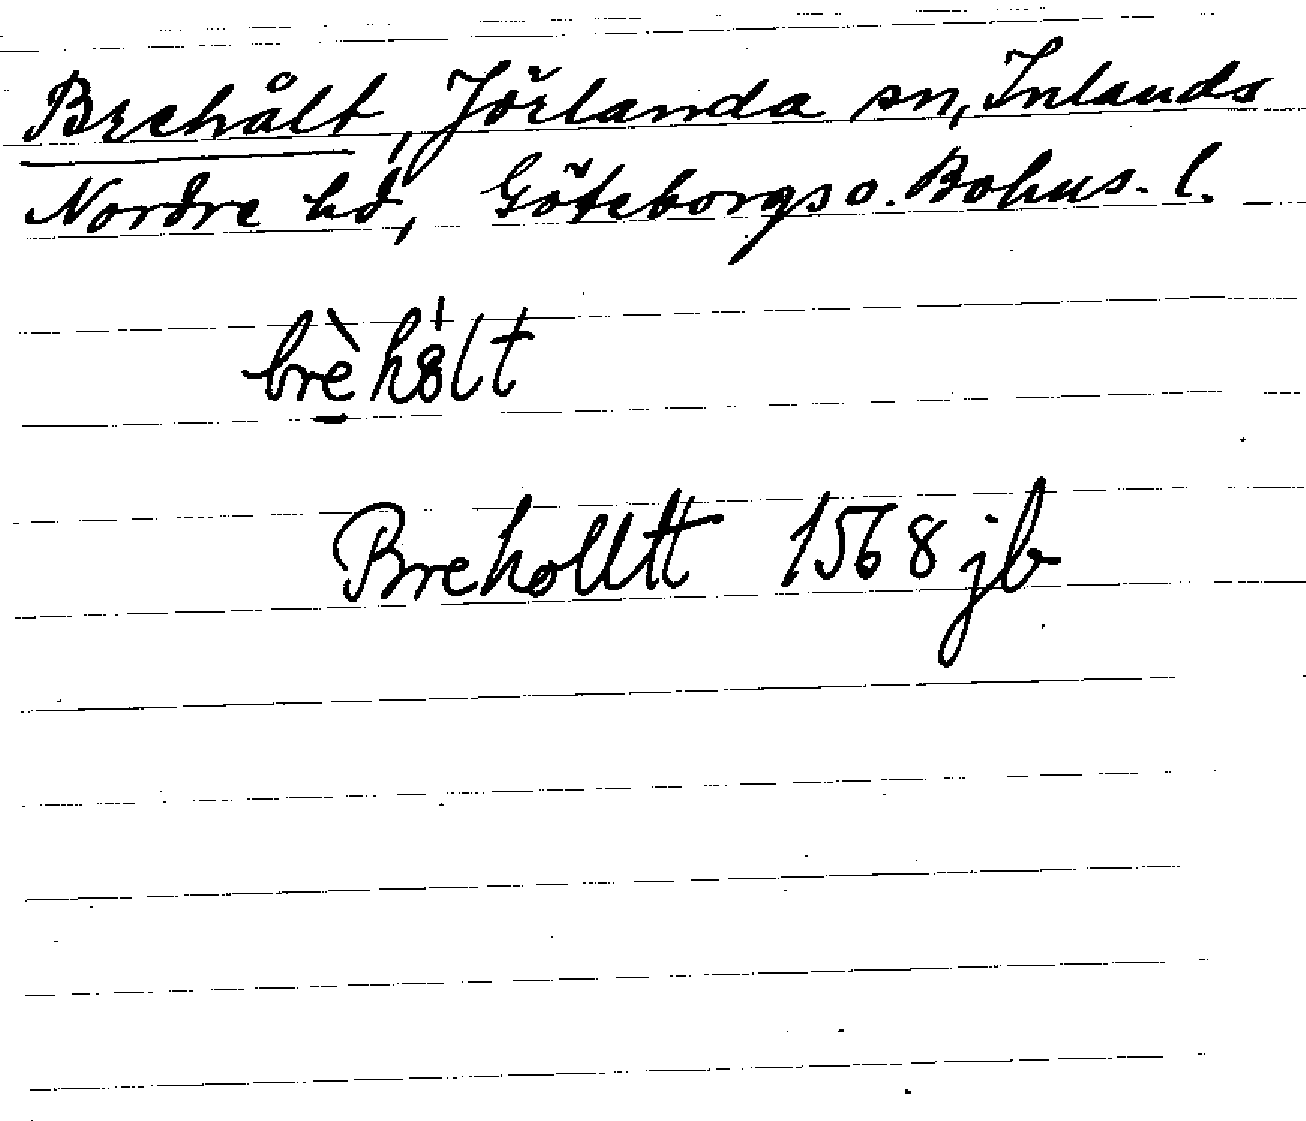 Brehålt, Jörlanda sn, Inlands
Nordre hd, Göteborgs o. Bohus- l.
brè̱hȣ̍lt
Breholltt 1568 jb